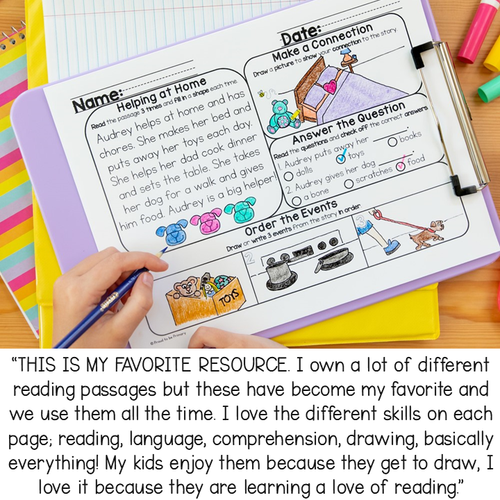 Name:
Date:
Helping at Home
Read the passage 3 times and fill in a shape each time.
Audrey helps at home and has
chores. She makes her bed and
puts away her toys each day.
She helps her dad cook dinner
and sets the table. She takes
her dog for a walk and gives
him food. Audrey is a big helper!
Make a Connection
Draw a picture to show your connection to the story.
Answer the Question
Read the questions and check off the correct answers
1. Audrey puts away her
dolls
toys
books
2. Audrey gives her dog
a bone
scratches
food
Order the Events
Draw or write 3 events from the story in order
TOYS
2
"THIS IS MY FAVORITE RESOURCE. I own a lot of different
reading passages but these have become my favorite and
we use them all the time. I love the different skills on each
page; reading, language, comprehension, drawing, basically
everything! My kids enjoy them because they get to draw, I
love it because they are learning a love of reading."